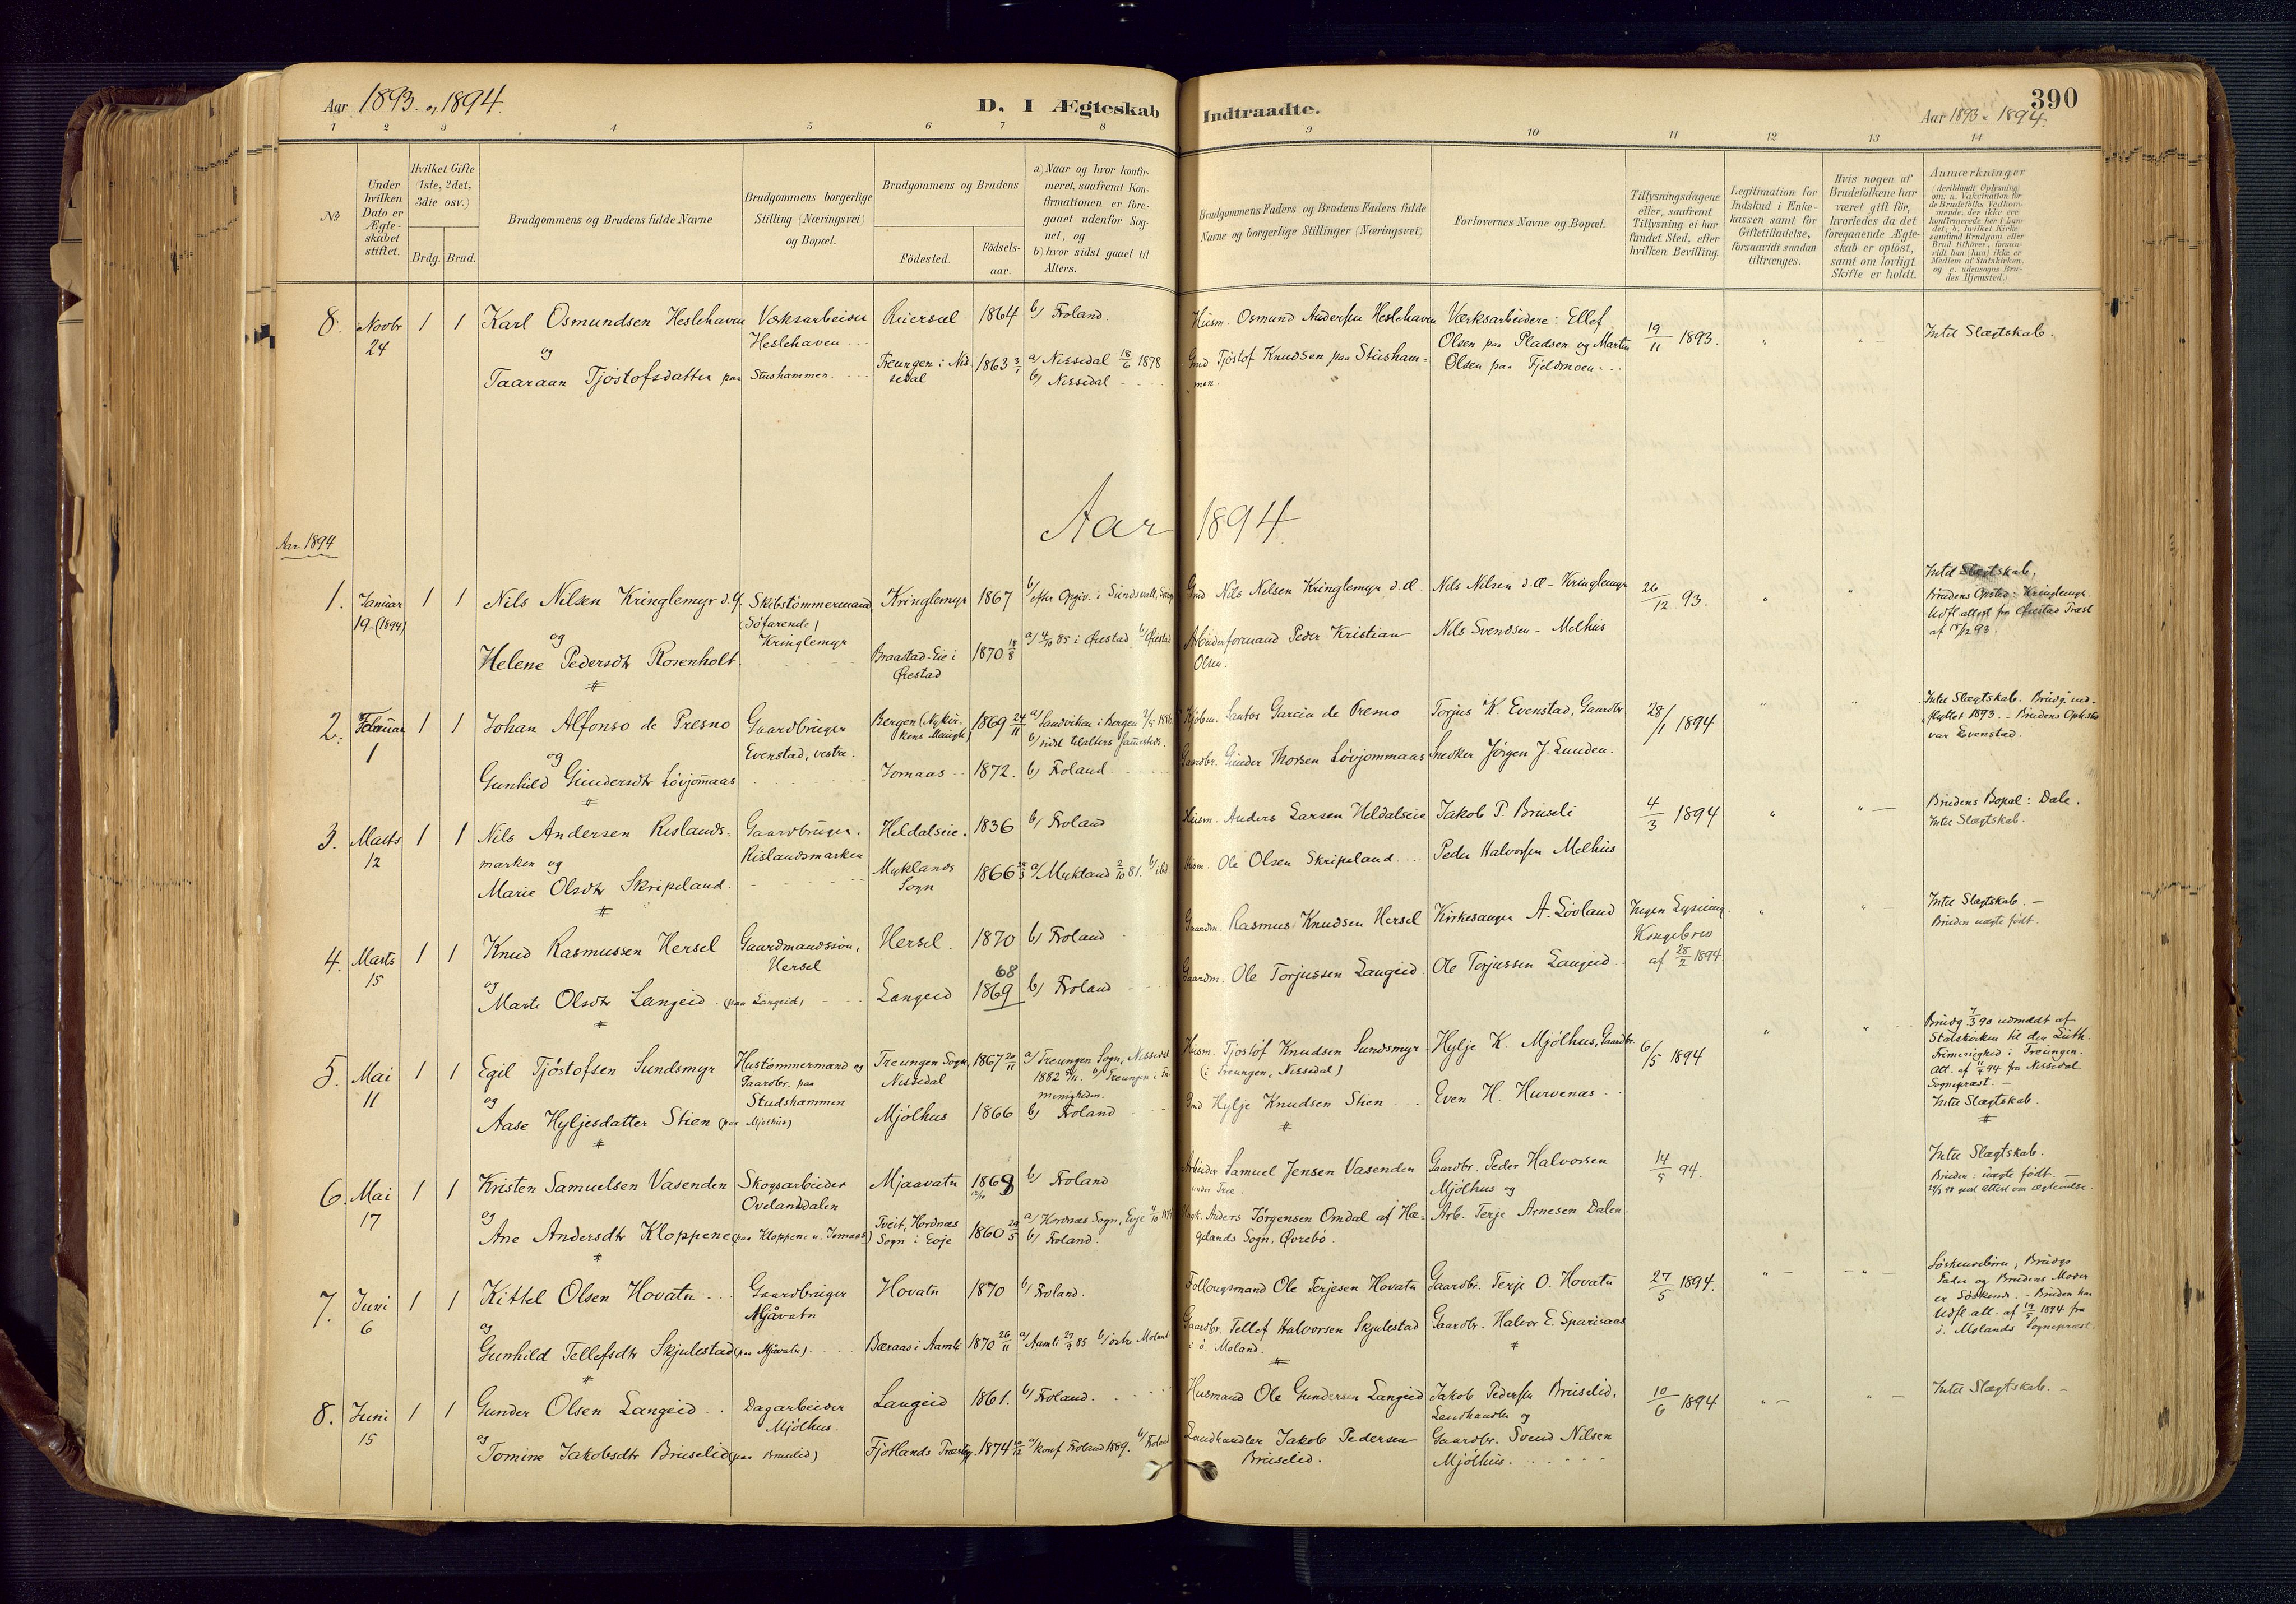 Aar 1893 og 1894.
D. I Ægteskab Indtraadte.
Aar 1893 & 1894.
390
1 2 3 4 5 6 7 8 9 10 11 12 13 14
No
Under hvilken Dato er Ægteskabet stiftet.
Hvilket Gifte (1ste, 2det, 3die osv.)
Brdg. Brud.
Brudgommens og Brudens fulde Navne
Brudgommens borgerlige Stilling (Næringsvei) og Bopæl.
Brudgommens og Brudens
Fødested. Fødselsaar.
a) Naar og hvor konfirmeret, saafremt Konfirmationen er foregaaet udenfor Sognet, og
b) hvor sidst gaaet til Alters.
Brudgommens Faders og Brudens Faders fulde Navne og borgerlige Stillinger (Næringsvei)
Forlovernes Navne og Bopæl.
Tillysningsdagene eller, saafremt Tillysning ei har fundet Sted, efter hvilken Bevilling.
Legitimation for Indskud i Enkekassen samt for Giftetilladelse, forsaavidt saadan tiltrænges.
Hvis nogen af Brudefolkene har været gift før, hvorledes da det foregaaende Ægteskab er opløst, samt om lovligt Skifte er holdt.
Anmærkninger
8. Novbr 24 1 1 Karl Osmundsen Heslehaven
og
Taaraan Tjøstofsdatter paa Stushammen
Værksarbeider Heslehaven
Reiersøl 1864 b/ Froland.
Treungen i Nissedal 1863 3/1 a/ Nissedal 18/6 1878
b/ Nissedal
Husm. Osmund Andersen Heslehaven
Gmd Tjøstof Knudsen paa Stushammen.
Værksarbeidere: Ellef
Olsen paa Pladsen og Martin
Olsen paa Fjeldmoen
19/11 1893.
Intet Slægtskab.
Aar 1894.
Aar 1894
1. Januar 19 (1894) 1 1 Nils Nilsen Kringlemyr d.y.
og
Helene Pedersdtr Rosenholt.
Skibstømmermand (Søfarende) Kringlemyr
Kringlemyr 1867 b/ efter Opgiv. i Sundsvall,
Braastad-Eie i Øiestad 1870 18/8 a/ 4/10 85 i Øiestad b/ Øiestad
Gmd Nils Nilsen Kringlemyr d. æ.
Arbeiderformand Peder Kristian Olsen.
Nils Nilsen d. æ - Kringlemyr
Nils Svendsen - Melhus
26/12 93.
Intet Slægtskab,
Brudens Opsted: Kringlemyr.
Udfl. attest fra Øiestad Præst
af 18/12 93.
2. Februar 1 1 1 Johan Alfonso de Presno
og
Gunhild Gundersdtr Løvjommaas
Gaardbruger Evenstad, vestre.
Bergen (Nykirkens Menigh) 1869 24/11 a/ Sandviken i Bergen
b/ sidst tilalters sammesteds.
Jomaas 1872. b/ Froland
Kjøbm. Santos Garcia de Presno
Gaardbr. Gunder Thorsen Løvjommaas
Torjus K. Evenstad, Gaardbr.
Snedker Jørgen J. Lunden.
28/1 1894
Intet Slægtskab. Brudg. indflyttet 1893. - Brudens Opholdst.
var Evenstad.
3. Marts 12 1 1 Nils Andersen Rislandsmarken og
Marie Olsdtr Skripeland.
Gaardbruger. Rislandsmarken
Heldalseie. 1836 b/ Froland
Myklands Sogn 1866 28/3 a/ Mykland 2/10 81. b/ ibd.
Husm. Anders Larsen Heldalseie
Husm. Ole Olsen Skripeland.
Jakob P. Bruseli
Peder Halvorsen Melhus
4/3 1894
Brudens Bopæl: Dale.
Intet Slægtskab.
4. Marts 15 1 1 Knud Rasmussen Hersel
og
Marte Olsdtr Langeid (paa Langeid)
Gaardmandssøn, Hersel
Hersel. 1870 b/ Froland
Langeid 68 1869 b/ Froland
Gaardm. Rasmus Knudsen Hersel
Gaardm. Ole Torjussen Langeid
Kirkesanger A. Løvland
Ole Torjussen Langeid
Ingen Lysning.
Kongebrev
af 28/2 1894
Intet Slægtskab. -
Bruden uægte født.
5. Mai 11 1 1 Egil Tjøstofsen Sundsmyr
og
Aase Hyljesdatter Stien (paa Mjølhus)
Hustømmermand og Gaardbr. paa Studshammen
Treungen Sogn, Nissedal 1867 20/11 a/ Treungen Sogn, Nissedal
1882 b/ Treungen i Frimenigheden.
Mjølhus 1866 b) Froland
Husm. Tjøstof Knudsen Sundsmyr
(i Treungen, Nissedal)
Gmd Hylje Knudsen Stien
Hylje K. Mjølhus, Gaardbr.
Even H. Hurvenæs
6/5 1894
Brudg 7/3 90 udmeldt af
Statskirken til den Luth.
Frimenighed i Treungen.
Att. af 11/4 94 fra Nissedal
Sognepræst. -
Intet Slægtskab.
6. Mai 17 1 1 Kristen Samuelsen Vasenden
og
Ane Andersdtr Kloppene (paa Kloppene u. Jomaas)
Skogsarbeider Ovelandsdalen
Mjaavatn 1868 b) Froland
Tveit, Hordnæs Sogn i Evje 1860 29/5 a/ Hordnæs Sogn, Evje
b) Froland.
Arbeider Samuel Jensen Vasenden
Anders Jørgensen Omdal af Hægelands Sogn, Øvrebø.
Gaardbr. Peder Halvorsen
Mjølhus og
Arb. Terje Arnesen Dalen
14/5 94.
Intet Slægtskab.
Bruden: uægte født.
7. Juni 6 1 1 Kittel Olsen Hovatn
og
Gunhild Tellefsdtr Skjulestad (paa Mjåvatn)
Gaardbruger Mjåvatn
Hovatn 1870 b/ Froland.
Bæraas i Aamli 1870 26/11 a/ Aamli 27/9 85 b/ østre Moland
Follougsmand Ole Terjesen Hovatn
Gaardbr. Tellef Halvorsen Skjulestad
i ø. Moland.
Gaardbr. Terje O. Hovatn
Gaardbr. Halvor E. Sparsaas
27/5 1894.
Søskendebørn; Brudgs
Fader og Brudens Moder
er Søskende. - Bruden har
Udfl. att. af 19/5 1894 fra
ø. Molands Sognepræst.
8. Juni 15 1 1 Gunder Olsen Langeid
og
Tomine Jakobsdtr Bruselid (paa Bruselid)
Dagarbeider Mjølhus.
Langeid 1861. b/ Froland.
Fjotlands Præstg. 1874 a/ konf Froland 1889. b/ Froland
Husmand Ole Gundersen Langeid
Landhandler Jakob Pedersen
Bruselid.
Jakob Pedersen Bruselid,
Landhandler og
Gaardbr. Svend Nilsen
Mjølhus.
10/6 1894
Intet Slægtskab. -